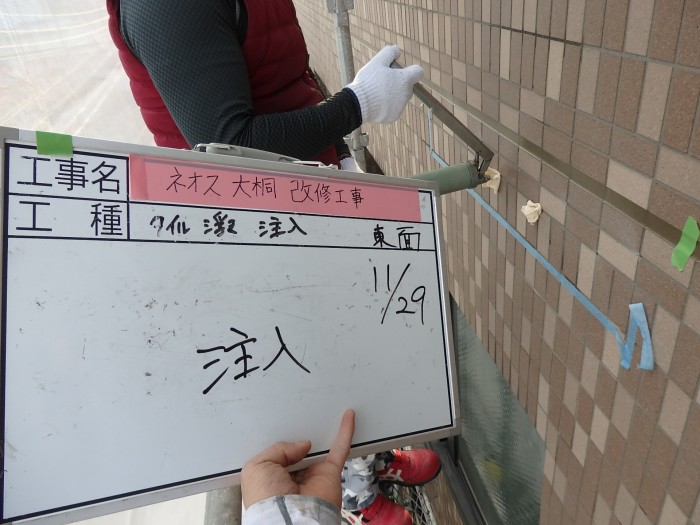 工事名 ネオス 大桐 改修工事
工種 タイル 注入 東面
11/29
注入